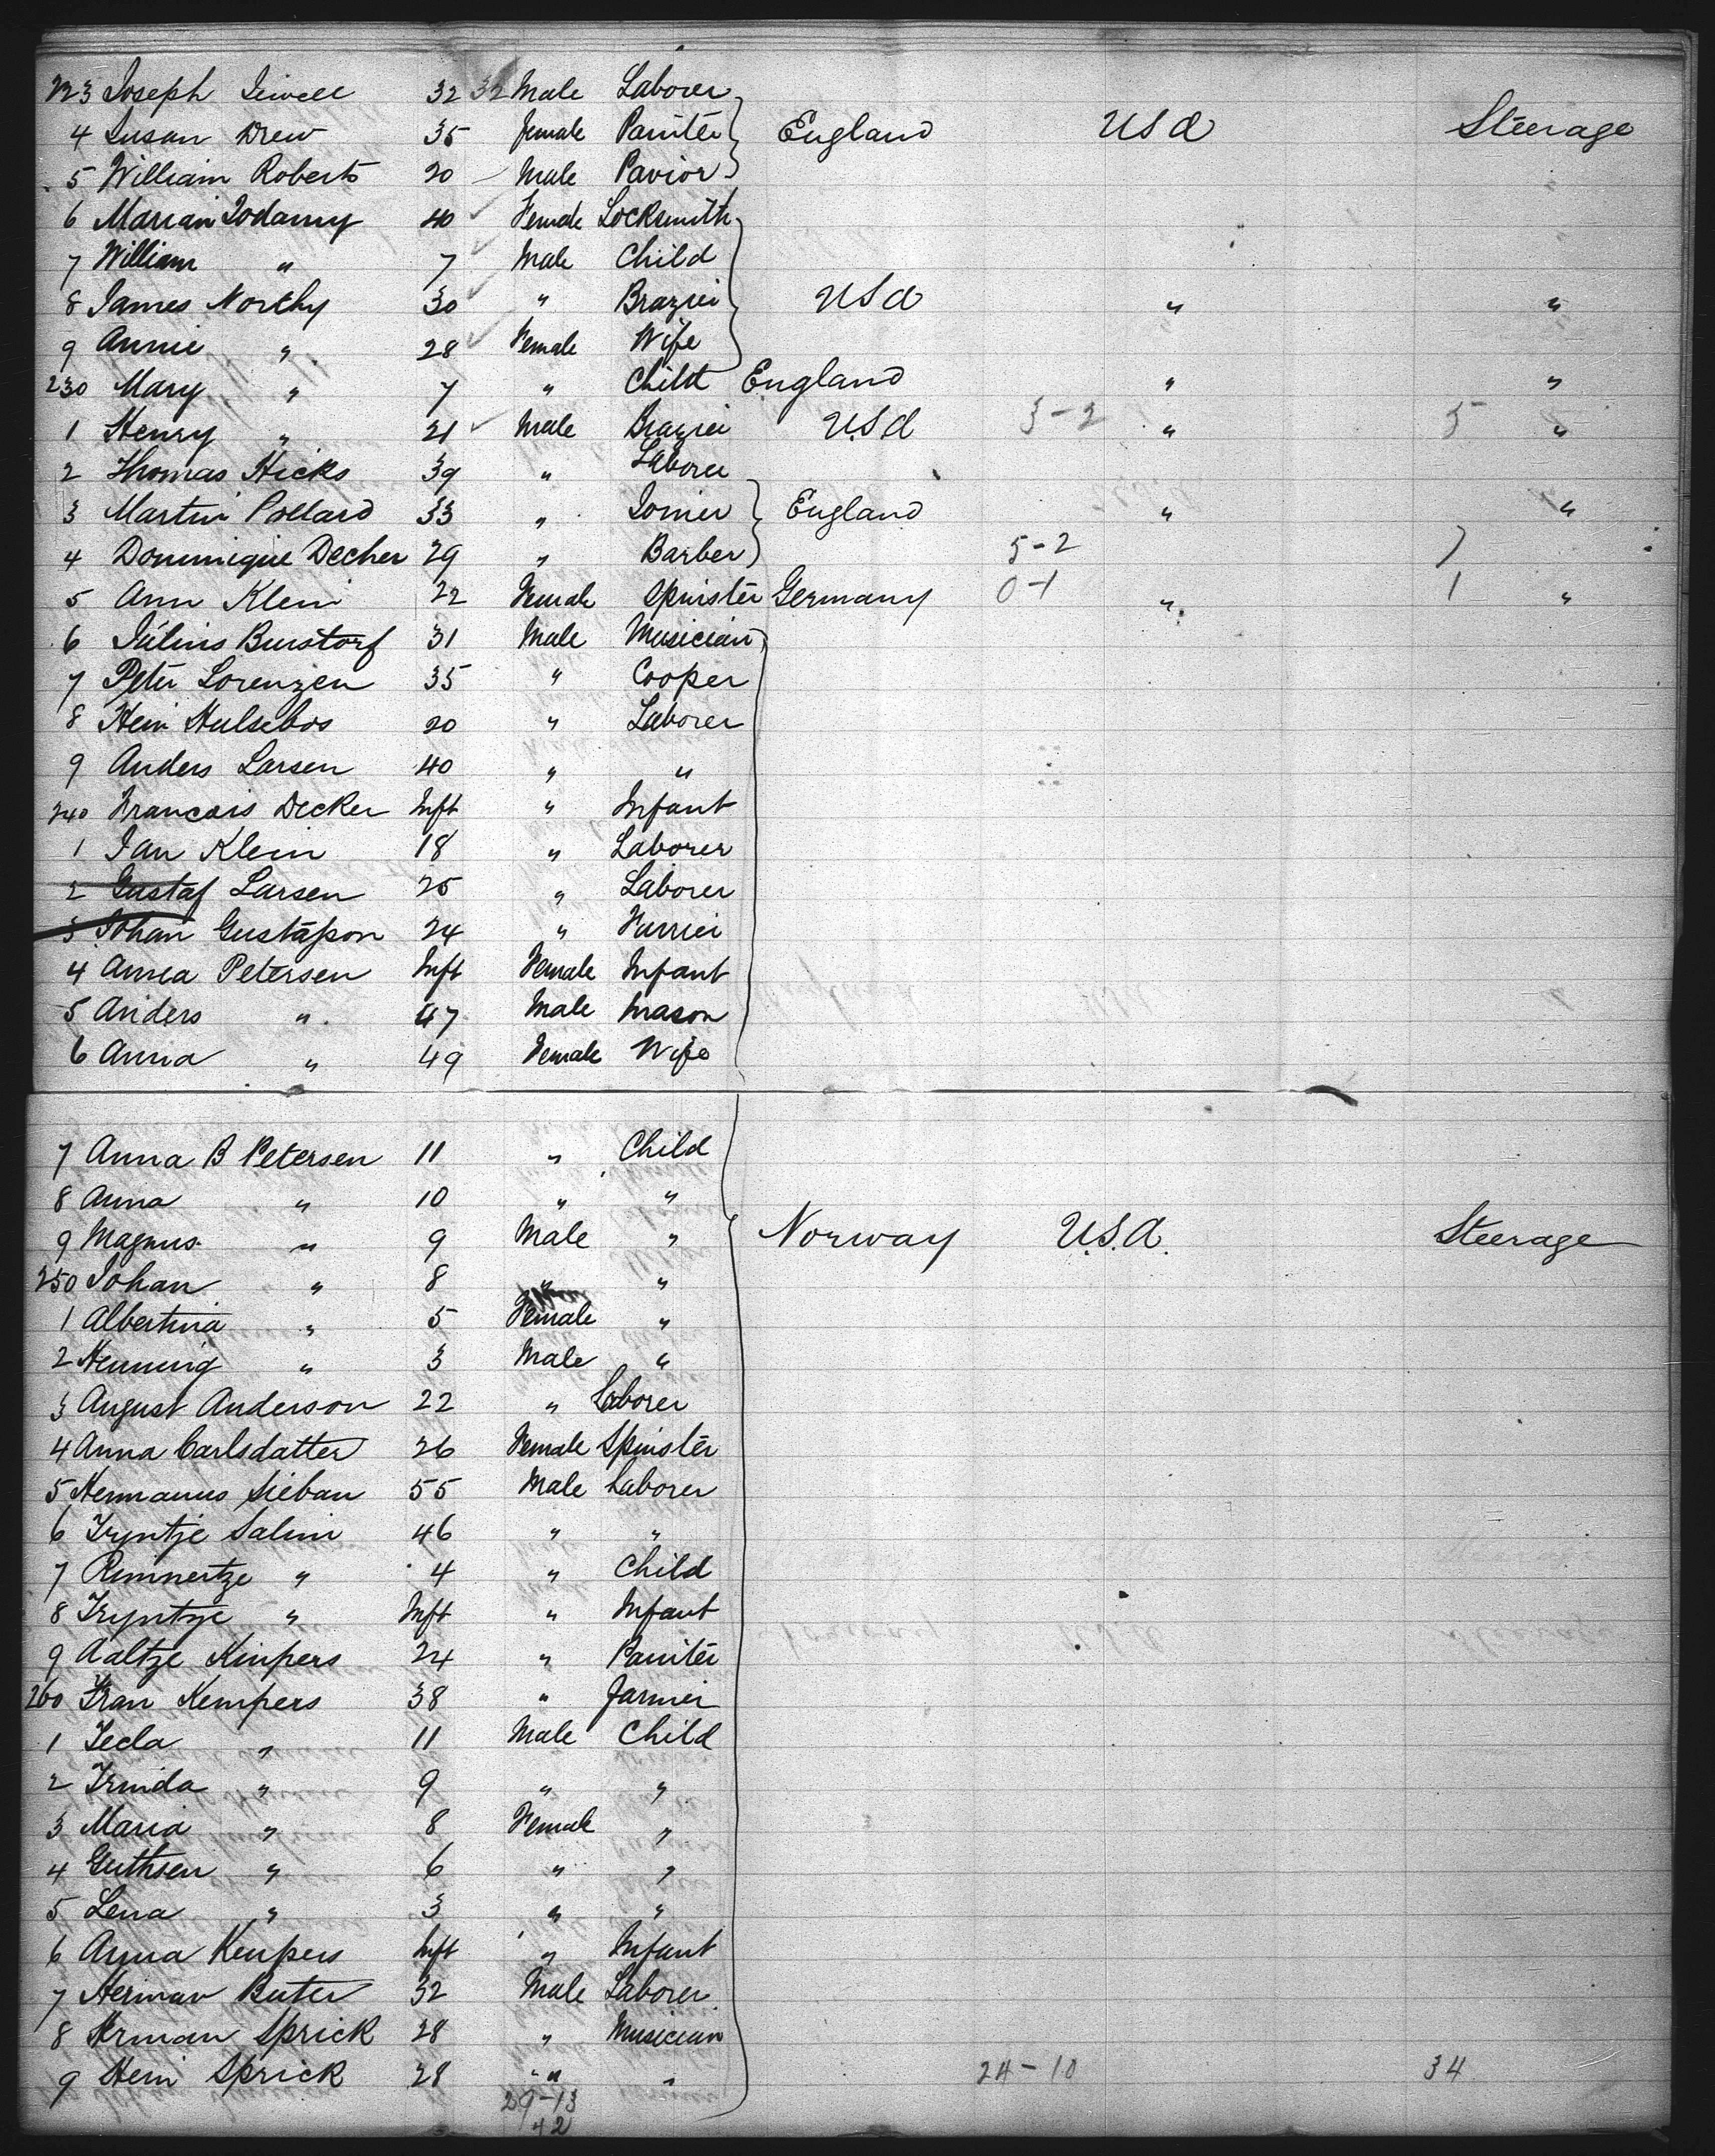 223 Joseph Jewell 32 32 Male Laborer
4 Susan Drew 35 female Painter England USA Steerage
5 William Roberts 20 Male Pavior
6 Marian 40 Female Locksmith
7 William " 7 Male Child
8 James Northy 30 " Brazier USA " "
9 Annie " 28 Female Wife
230 Mary " 7 " Child England " "
1 Henry " 21 Male Brazier USA 3-2 " 5 "
2 Thomas Hicks 39 " Laborer
3 Martin Pollard 33 " Joiner England " "
4 Dominique Decher 29 " Barber 5-2 7
5 Ann Klein 22 Female Spinster Germany 0-1 " 1 "
6 Julius Burstorf 31 Male Musician
7 Peter Lorenzen 35 " Cooper
8 Hein Hulsebos 20 " Laborer
9 Anders Larsen 40 " "
240 Francois Decker Inft " Infant
1 Jan Klein 18 " Laborer
2 Gustaf Larsen 25 " Laborer
3 Johan Gustafson 24 " Furrier
4 Anna Petersen Inft Female Infant
5 Anders " 47 Male Mason
6 Anna " 49 Female Wife
7 Anna B Petersen 11 " Child
8 Anna " 10 " "
9 Magnus " 9 Male " Norway U.S.A. Steerage
250 Johan " 8 " "
1 Albertina " 5 Female "
2 Henning " 3 Male "
3 August Anderson 22 " Laborer
4 Anna Carlsdatter 26 Female Spinster
5 Hermanus Sieban 55 Male Laborer
6 Tryntje Salim 46 " "
7 Rinnertze " 4 " Child
8 Tryntje " Inft " Infant
9 Aaltze Kinpers 24 " Painter
260 Fran Kempers 38 " Farmer
1 Tecla " 11 Male Child
2 Trinda " 9 " "
3 Maria " 8 Female "
4 " 6 " "
5 Lena " 3 " "
6 Anna Kenpers Inft " Infant
7 Herman Buter 32 Male Laborer
8 Herman Sprick 28 " Musician
9 Hein Sprick 28 " " 24-10 34
29-13
42